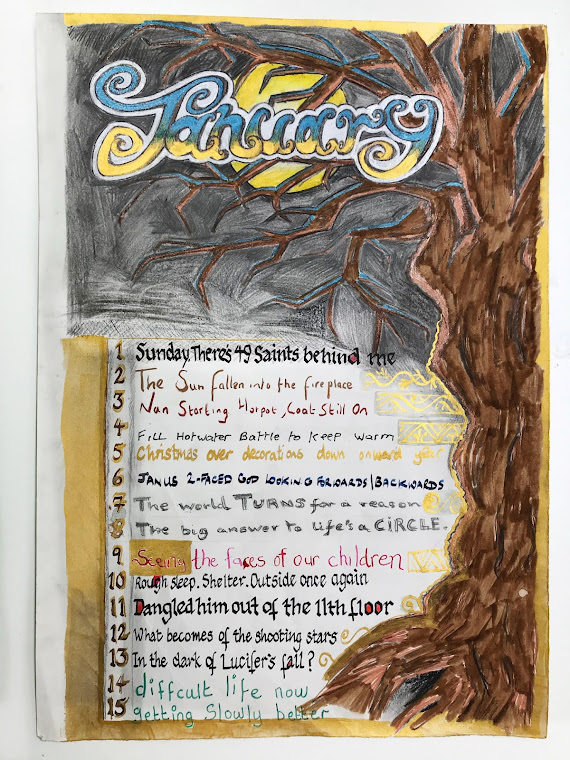 January
1 Sunday, There's 49 Saints behind me
2 The Sun fallen into the fireplace
3 Nan Starting Hotpot, Coat Still On
4 Fill Hotwater Bottle to keep warm
5 Christmas over decorations down onward year
6 JANUS 2-FACED GOD LOOKING FORWARDS/BACKWARDS
7 The world TURNS for a reason
8 The big answer to life's a CIRCLE.
9 Seeing the faces of our children
10 Rough sleep. Shelter. Outside once again
11 Dangled him out of the 11th floor
12 What becomes of the shooting stars
13 In the dark of Lucifer's fall?
14 diffcult life now
15 getting slowly better